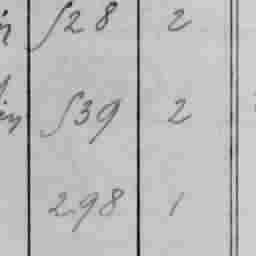 528 2
539 2
298 1